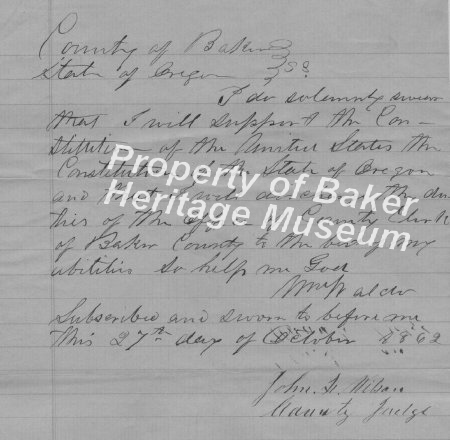 County of Baker
State of Oregon } ss
I do solemnly swear
that I will support the Con-
stitution of the United States the
Constitution of the State of Oregon
and that I will discharge the du
ties of the office of County Clerk
of Baker County to the best of my
abilities So help me God
Wm Waldo
Subscribed and sworn to before me
this 27th day of October 1862
John
County Judge
Property of Baker
Heritage Museum